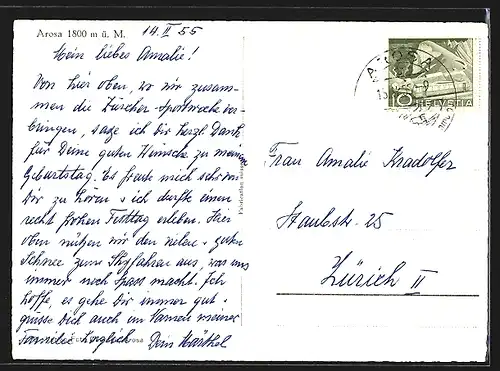 Arosa 1800 m ü. M.
14. II 55
Mein liebes Amalie!
Von hier oben, wo wir zusam-
men die Zürcher Sportwoche ver-
bringen, sage ich Dir herzl. Dank
für Deine guten Wünsche zu meinem
Geburtstag. Es freute mich sehr von
Dir zu hören & ich durfte einen
recht frohen Festtag erleben. Hier
oben nützen wir den vielen & guten
Schnee zum Skyfahren aus, was uns
immer noch Spass macht. Ich
hoffe, es gehe Dir immer gut &
grüsse Dich auch im Namen meiner
Familie herzlich Dein
AROSA
10 HELVETIA
Frau Amalie Kradolfer
Staubstr. 25
Zürich II